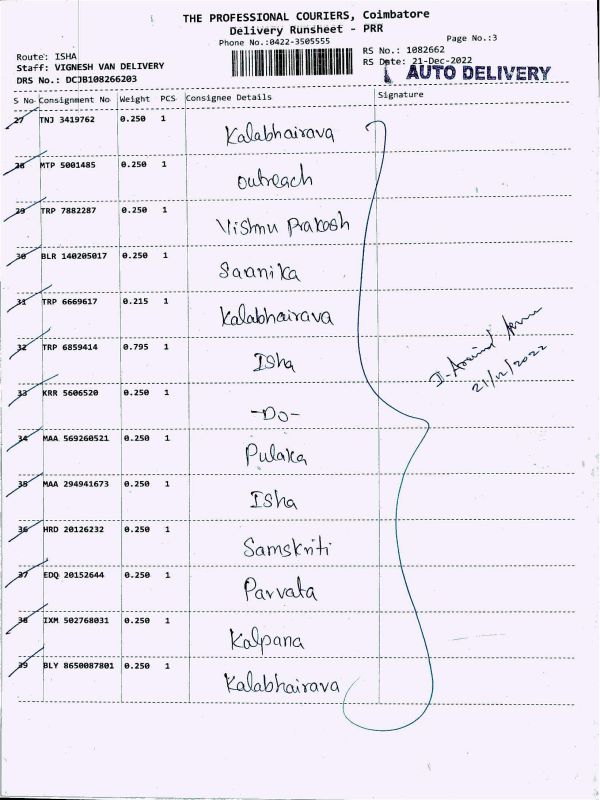 THE PROFESSIONAL COURIERS, Coimbatore
Delivery Runsheet - PRR
Phone No.:0422-3505555
Page No.:3
Route: ISHA
RS No.: 1082662
Staff: VIGNESH VAN DELIVERY
RS Date: 21-Dec-2022
DRS No.: DCJB108266203
AUTO DELIVERY
S No Consignment No Weight PCS Consignee Details Signature
27 TNJ 3419762 0.250 1 Kalabhairava
28 MTP 5001485 0.250 1 outreach
29 TRP 7882287 0.250 1 Vishnu Prakash
30 BLR 140205017 0.250 1 Saranika
31 TRP 6669617 0.215 1 Kalabhairava
32 TRP 6859414 0.795 1 Isha
33 KRR 5606520 0.250 1 -Do-
34 MAA 569260521 0.250 1 Pulaka
35 MAA 294941673 0.250 1 Isha
36 HRD 20126232 0.250 1 Samskriti
37 EDQ 20152644 0.250 1 Parvata
38 IXM 502768031 0.250 1 Kalpana
39 BLY 8650087801 0.250 1 Kalabhairava
21/12/2022